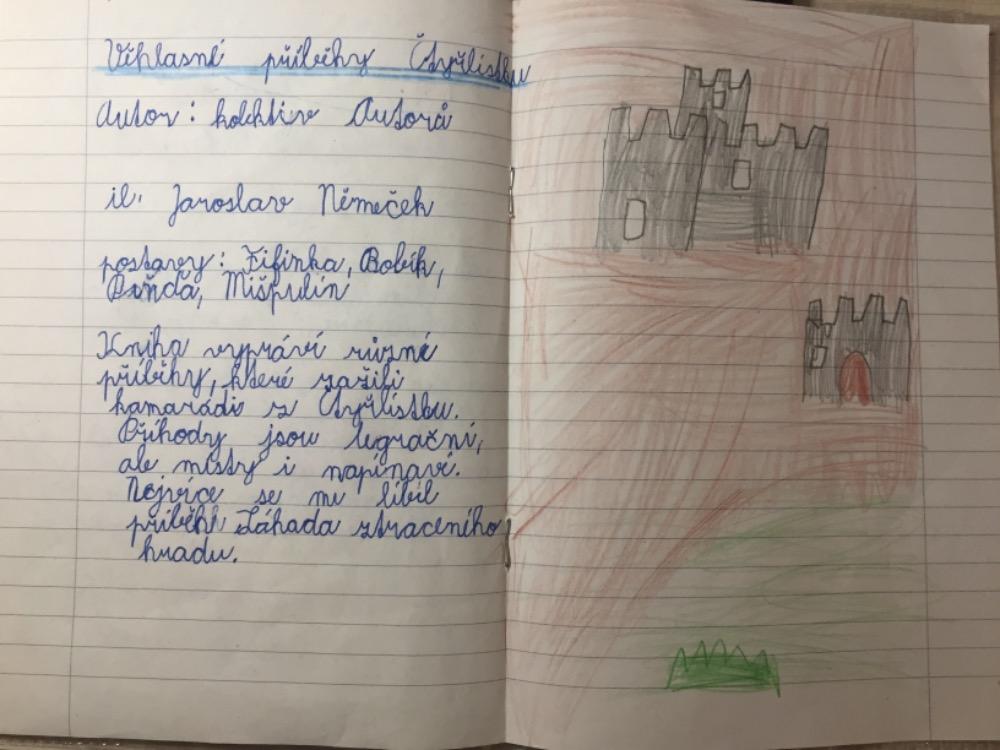 Věhlasné příběhy Čtyřlístku
Autor: kolektiv Autorů
il. Jaroslav Němeček
postavy: Fifinka, Bobík,
Pinďa, Mišpulín
Kniha vypráví různé
příběhy, které zažili
kamarádi z Čtyřlístku.
Příhody jsou legrační,
ale místy i napínavé.
Nejvíce se mi líbil
příběh Záhada ztraceného
hradu.